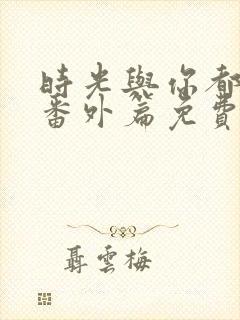 時光與你都
番外篇免費
聶雲梅